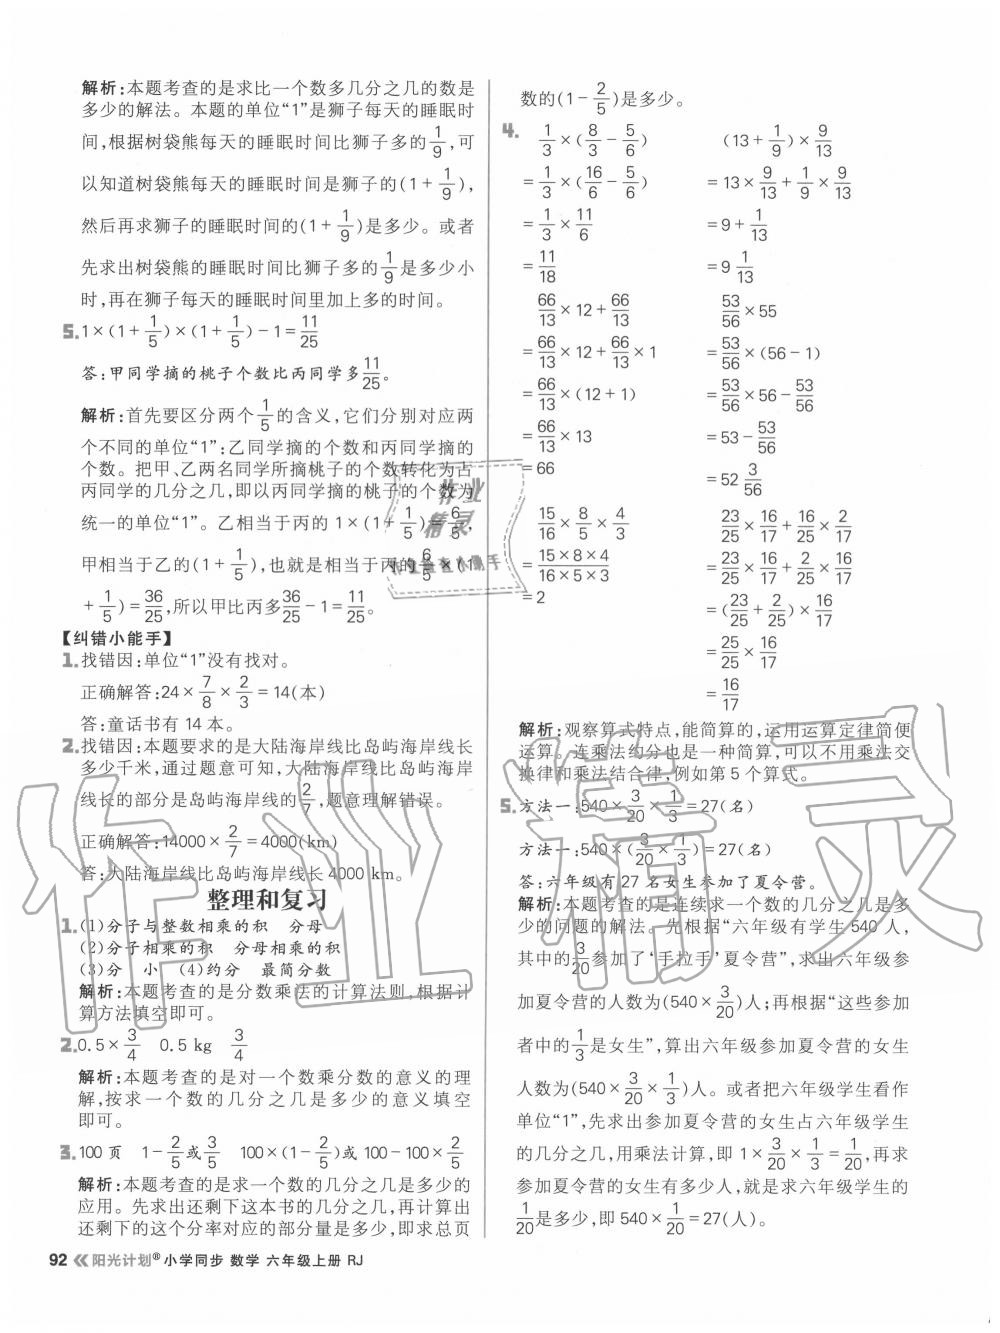 解析:本题考查的是求比一个数多几分之几的数是
多少的解法。本题的单位“1”是狮子每天的睡眠时
间,根据树袋熊每天的睡眠时间比狮子多的1/9,可
以知道树袋熊每天的睡眠时间是狮子的(1+1/9),
然后再求狮子的睡眠时间的(1+1/9)是多少。或者
先求出树袋熊的睡眠时间比狮子多的1/9是多少小
时,再在狮子每天的睡眠时间里加上多的时间。
5.1×(1+1/5)×(1+1/5)-1=11/25
答:甲同学摘的桃子个数比丙同学多11/25。
解析:首先要区分两个1/5的含义,它们分别对应两
个不同的单位“1”:乙同学摘的个数和丙同学摘的
个数。把甲、乙两名同学所摘桃子的个数转化为占
丙同学的几分之几,即以丙同学摘的桃子的个数为
统一的单位“1”。乙相当于丙的 1×(1+1/5)=6/5,
甲相当于乙的(1+1/5),也就是相当于丙的6/5×(1
+1/5)=36/25,所以甲比丙多36/25-1=11/25。
【纠错小能手】
1.找错因:单位“1”没有找对。
正确解答:24×7/8×2/3=14(本)
答:童话书有 14 本。
2.找错因:本题要求的是大陆海岸线比岛屿海岸线长
多少千米,通过题意可知,大陆海岸线比岛屿海岸
线长的部分是岛屿海岸线的2/7,题意理解错误。
正确解答:14000×2/7=4000(km)
答:大陆海岸线比岛屿海岸线长 4000 km。
整理和复习
1.(1)分子与整数相乘的积 分母
(2)分子相乘的积 分母相乘的积
(3)分 小 (4)约分 最简分数
解析:本题考查的是分数乘法的计算法则,根据计
算方法填空即可。
2.0.5×3/4 0.5 kg 3/4
解析:本题考查的是对一个数乘分数的意义的理
解,按求一个数的几分之几是多少的意义填空
即可。
3.100 页 1-2/5或3/5 100×(1-2/5)或 100-100×2/5
解析:本题考查的是求一个数的几分之几是多少的
应用。先求出还剩下这本书的几分之几,再计算出
还剩下的这个分率对应的部分量是多少,即求总页
数的(1-2/5)是多少。
4. 1/3×(8/3-5/6) (13+1/9)×9/13
=1/3×(16/6-5/6) =13×9/13+1/9×9/13
=1/3×11/6 =9+1/13
=11/18 =9 1/13
66/13×12+66/13 53/56×55
=66/13×12+66/13×1 =53/56×(56-1)
=66/13×(12+1) =53/56×56-53/56
=66/13×13 =53-53/56
=66 =52 3/56
15/16×8/5×4/3 23/25×16/17+16/25×2/17
=15×8×4/16×5×3 =23/25×16/17+2/25×16/17
=2 =(23/25+2/25)×16/17
=25/25×16/17
=16/17
解析:观察算式特点,能简算的,运用运算定律简便
运算。连乘法约分也是一种简算,可以不用乘法交
换律和乘法结合律,例如第 5 个算式。
5.方法一:540×3/20×1/3=27(名)
方法一:540×(3/20×1/3)=27(名)
答:六年级有 27 名女生参加了夏令营。
解析:本题考查的是连续求一个数的几分之几是多
少的问题的解法。先根据“六年级有学生 540 人,
其中的3/20参加了‘手拉手’夏令营”,求出六年级参
加夏令营的人数为(540×3/20)人;再根据“这些参加
者中的1/3是女生”,算出六年级参加夏令营的女生
人数为(540×3/20×1/3)人。或者把六年级学生看作
单位“1”,先求出参加夏令营的女生占六年级学生
的几分之几,用乘法计算,即 1×3/20×1/3=1/20,再求
参加夏令营的女生有多少人,就是求六年级学生的
1/20是多少,即 540×1/20=27(人)。
92 阳光计划® 小学同步 数学 六年级上册 RJ
作业精灵
作业
精灵
作业检查小助手